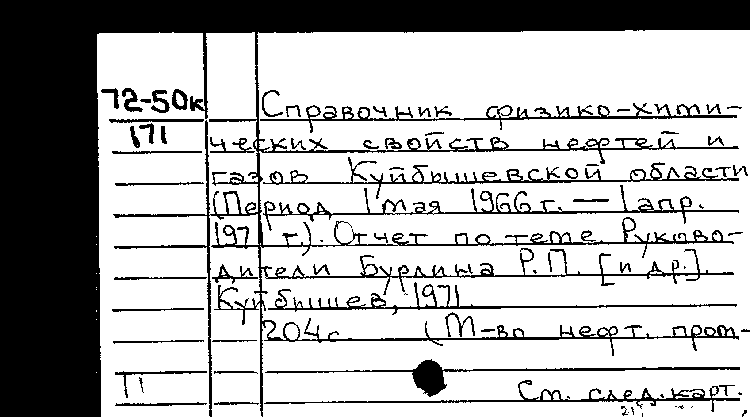 72-50к Справочник физико-хими-
171 ческих свойств нефтей и
газов Куйбышевской области
(Период 1 мая 1966 г. — 1 апр.
1971 г.). Отчет по теме Руково-
дители Бурлина Р.П. [и др.].
Куйбышев, 1971.
204 с. (М-во нефт. пром-
См. след. карт.